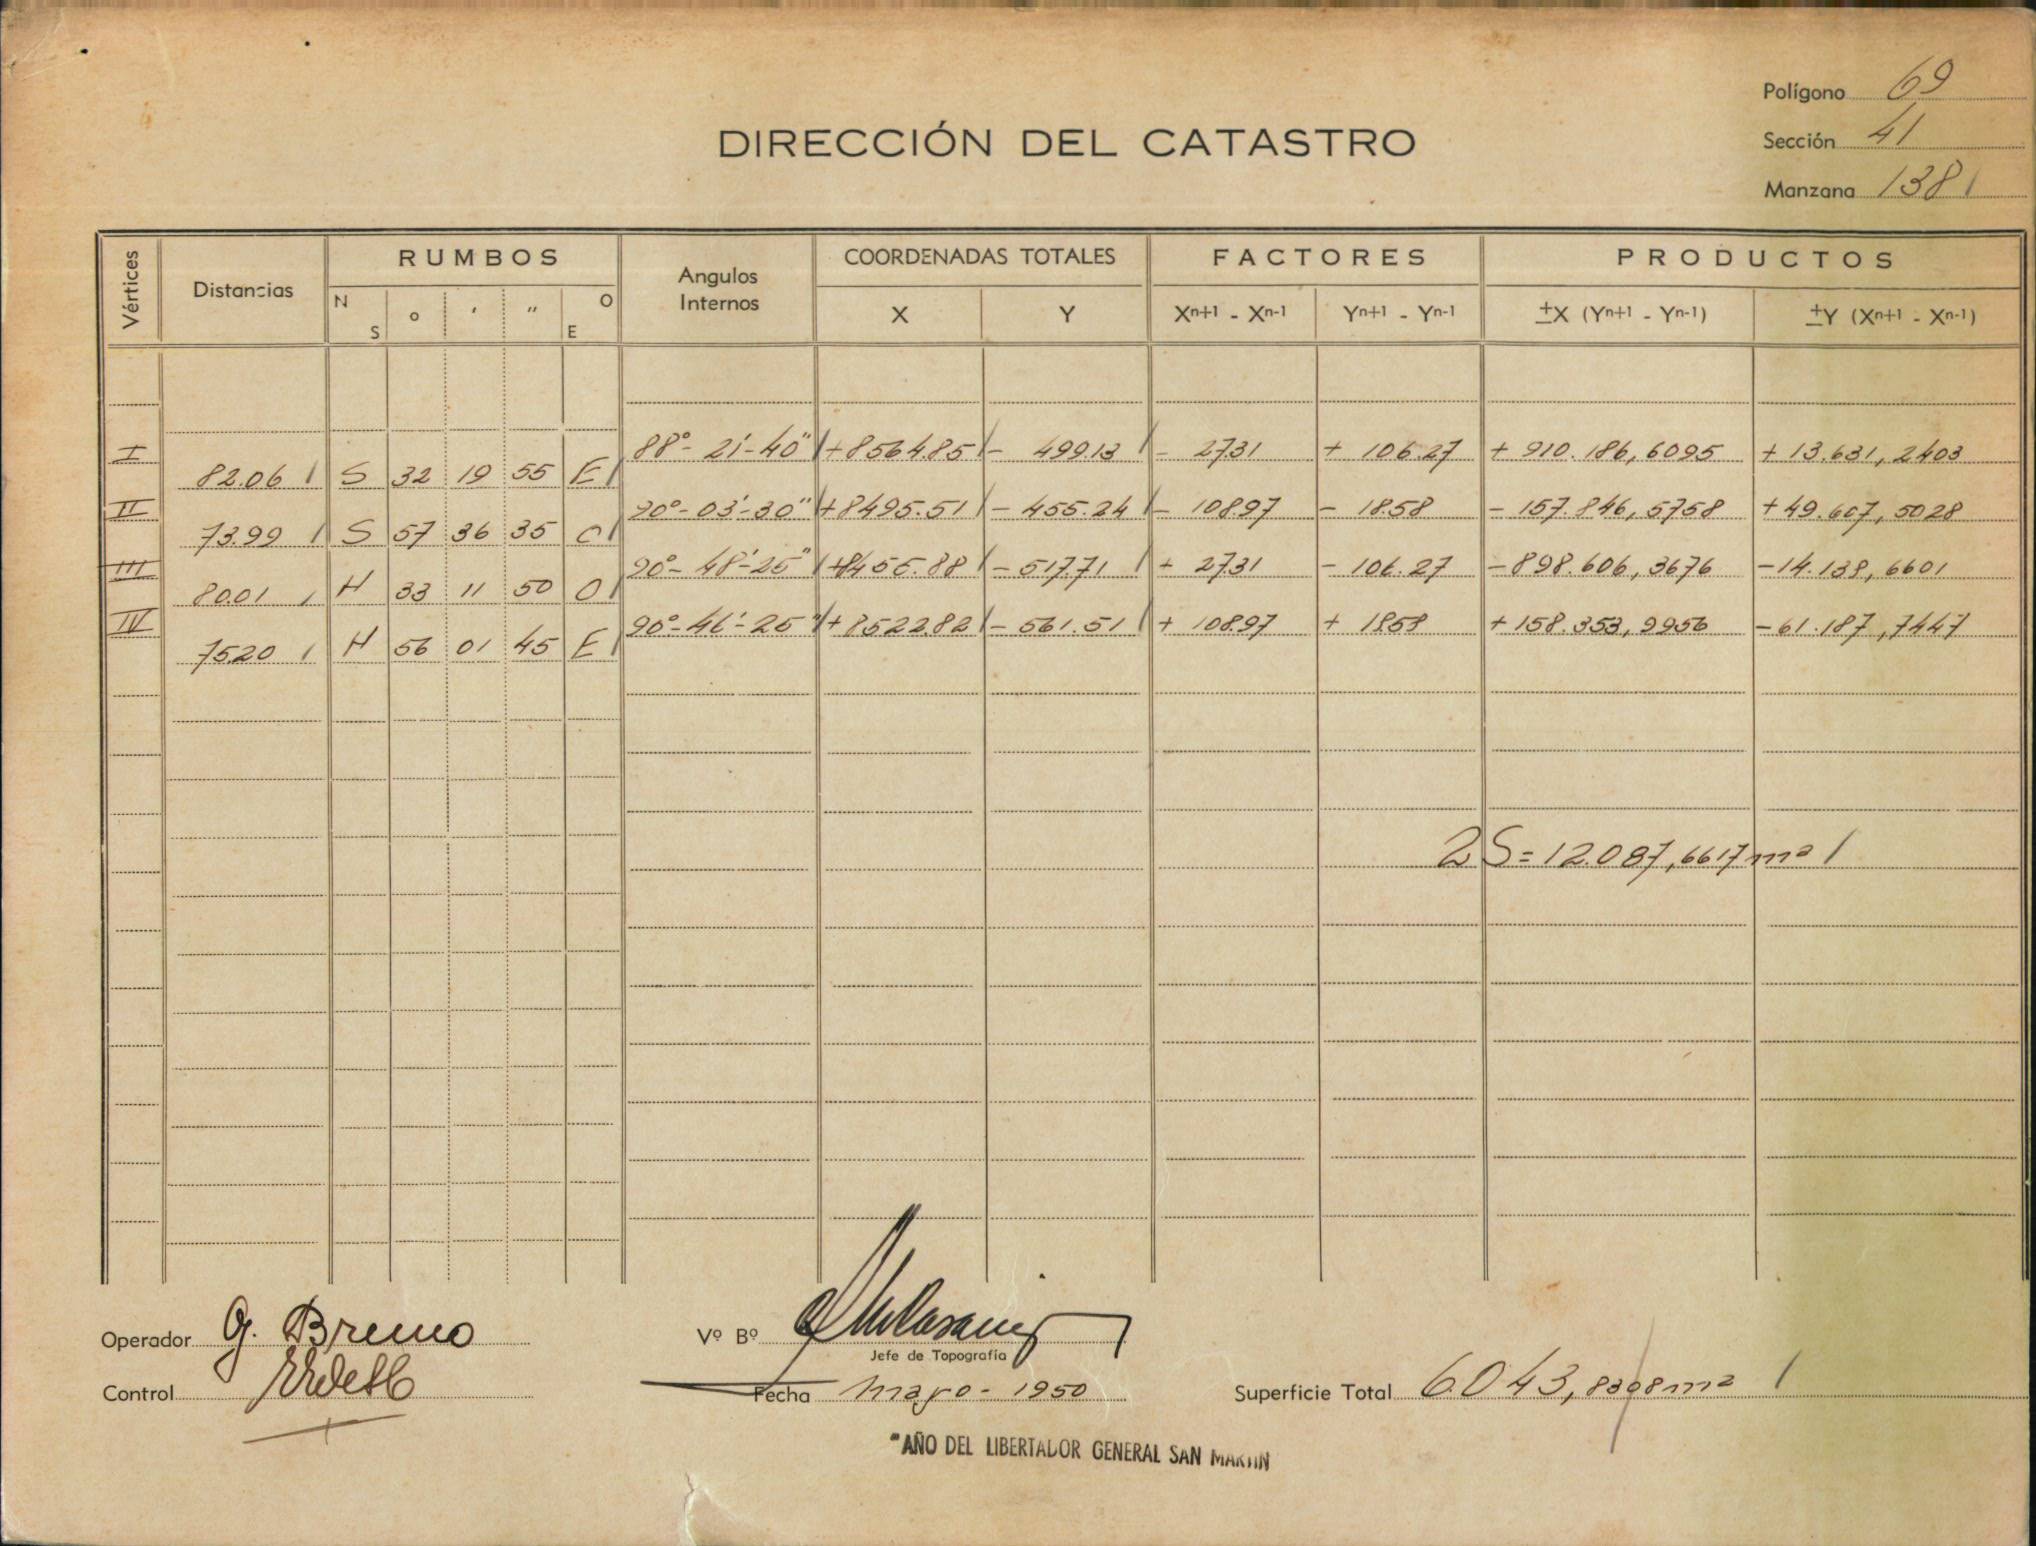 Polígono 69
DIRECCIÓN DEL CATASTRO
Sección 41
Manzana 138
Vértices Distancias RUMBOS Angulos Internos COORDENADAS TOTALES FACTORES PRODUCTOS
N S ° ' " O E X Y Xn+1 - Xn-1 Yn+1 - Yn-1 ±X (Yn+1 - Yn-1) ±Y (Xn+1 - Xn-1)
I 88°-21'-40" +8564.85 - 499.13 - 27.31 + 106.27 + 910.186,6095 + 13.631,2403
82.06 S 32 19 55 E
II 90°-03'-30" +8495.51 - 455.24 - 108.97 - 18.58 - 157.846,5758 +49.607,5028
73.99 S 57 36 35 O
III 90°-48'-25" +8455.88 - 517.71 + 27.31 - 106.27 -898.606,3676 -14.138,6601
80.01 N 33 11 50 O
IV 90°-46'-25" +8522.82 - 561.51 + 108.97 + 18.58 +158.353,9956 -61.187,7447
75.20 N 56 01 45 E
2S=12.087,6617 m²
Operador G. Bremo
Vº Bº
Jefe de Topografía
Control
Fecha mayo - 1950
Superficie Total 6.043,8308 m²
"AÑO DEL LIBERTADOR GENERAL SAN MARTIN